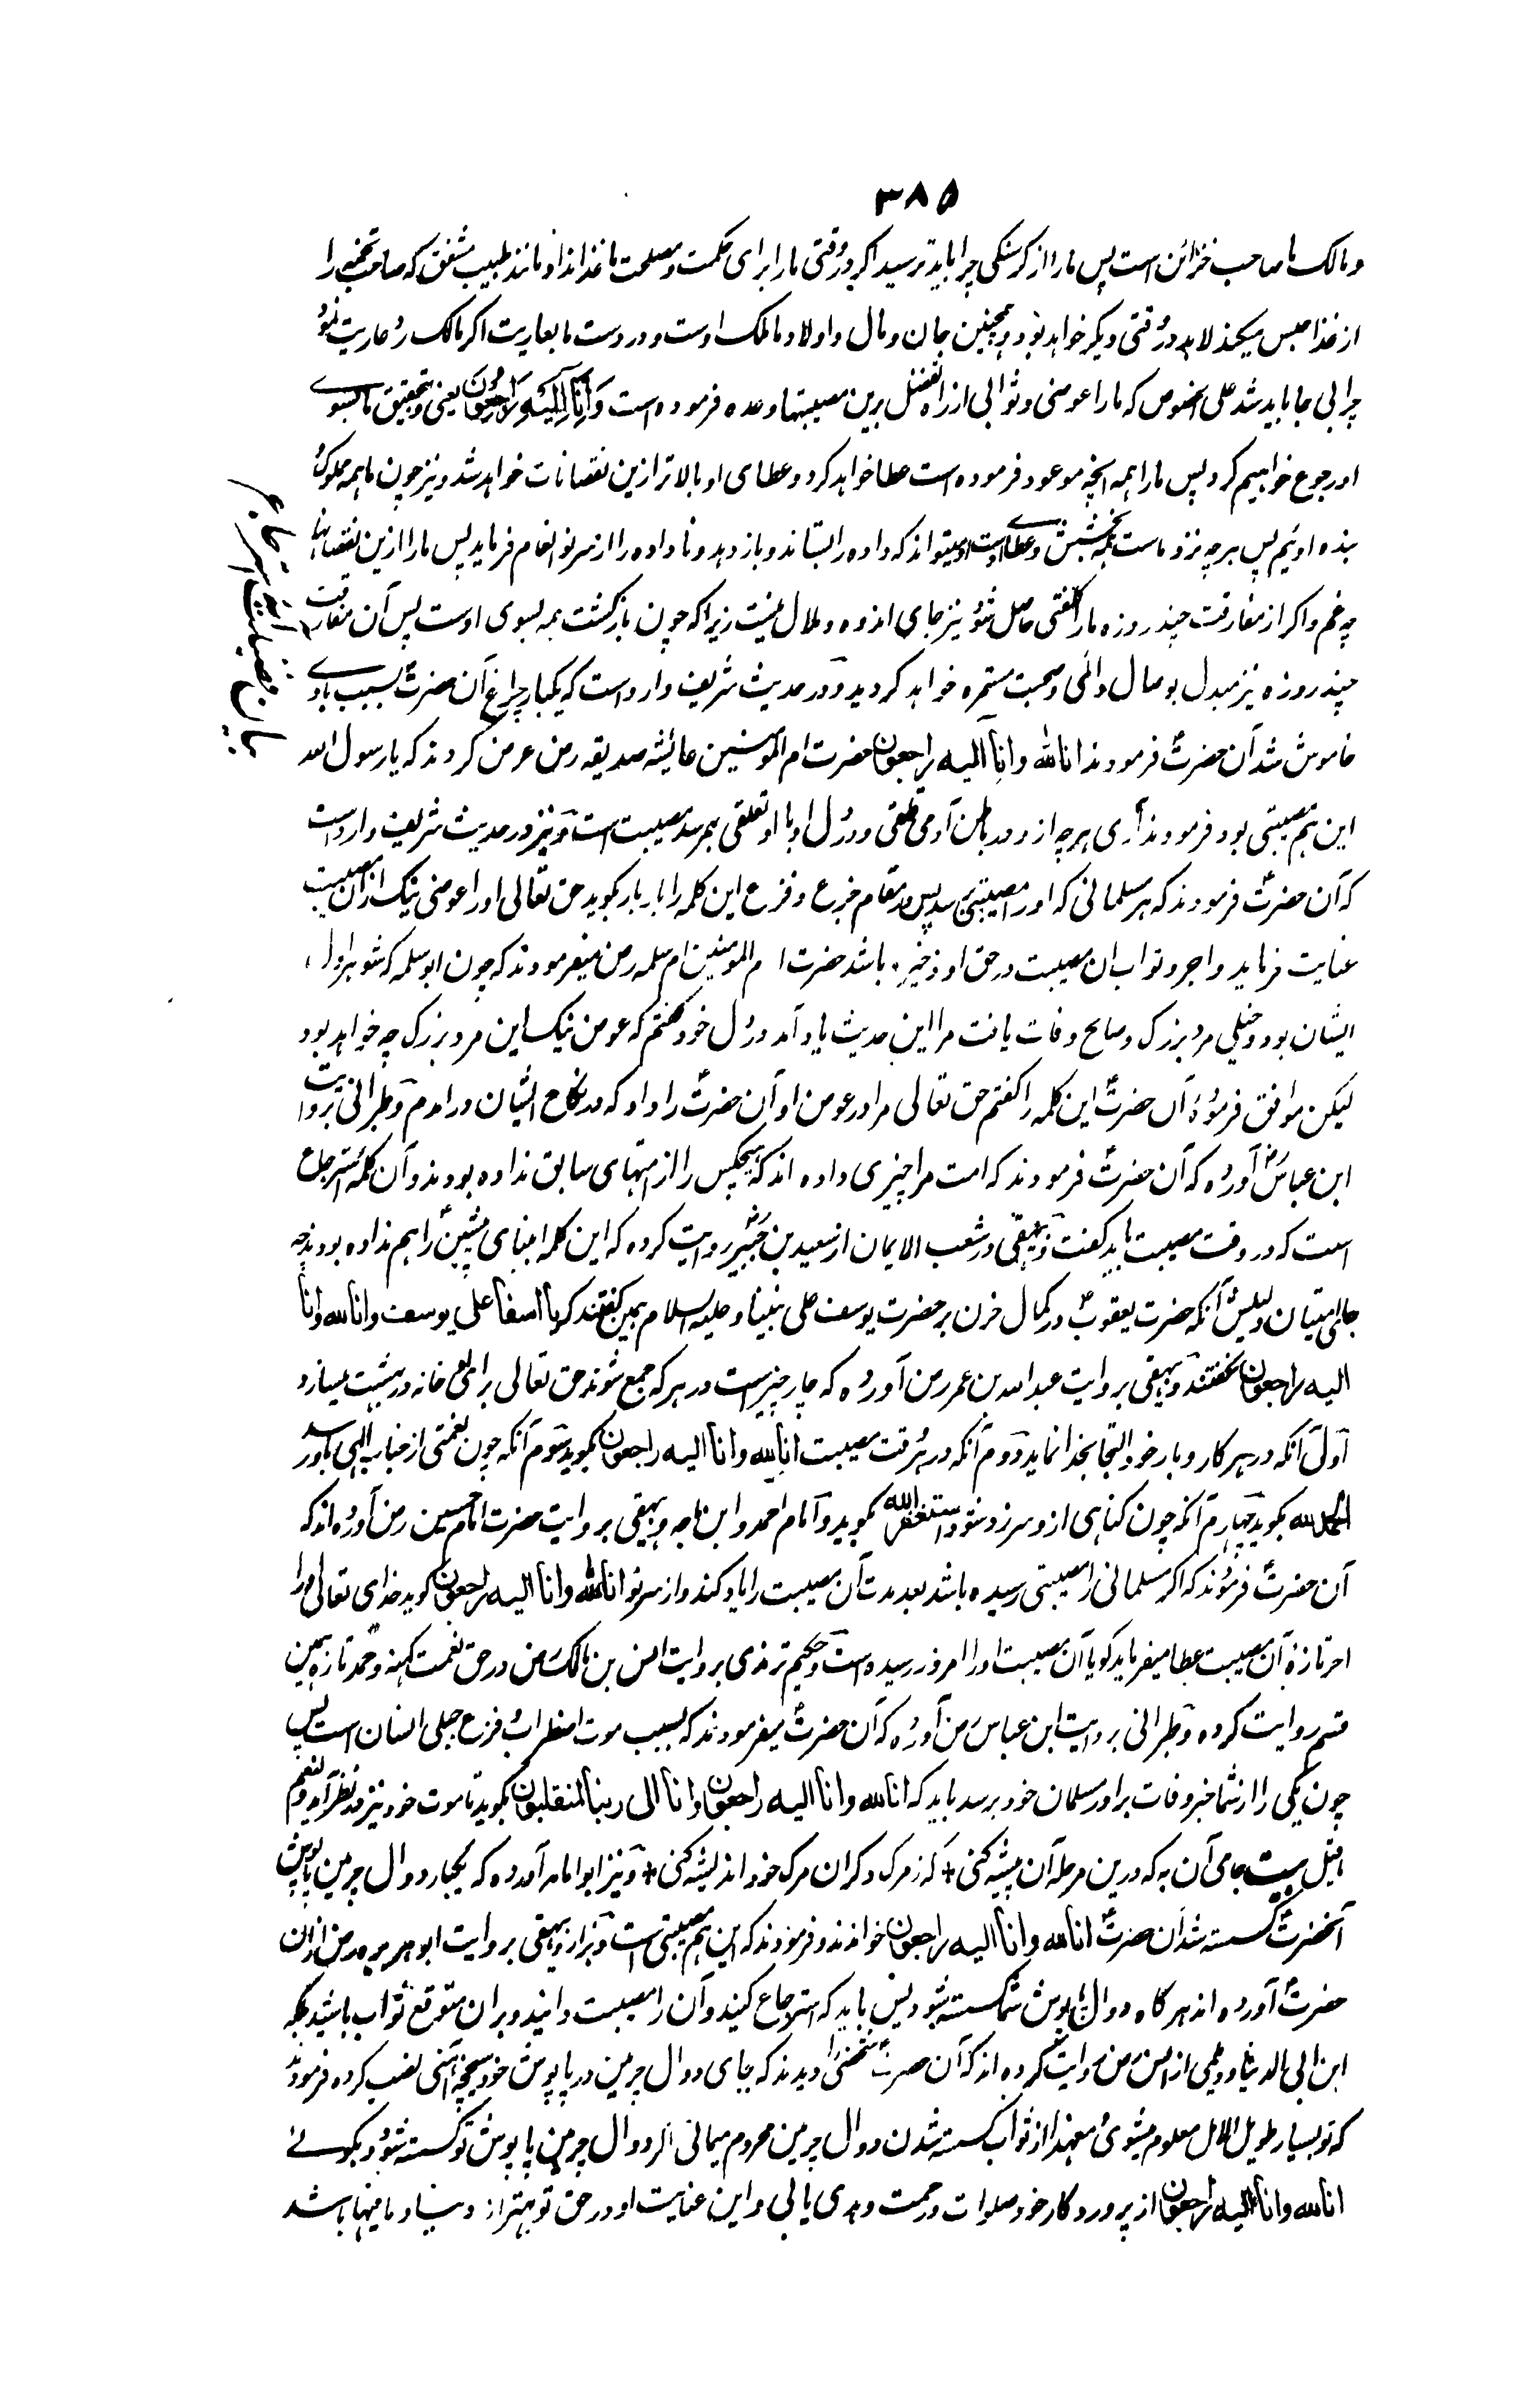 ۳۸۵
و مالک ما صاحب خزائن است پس ما را از گرسنگی چرا باید ترسید اگر در وقتی ما را برای حکمت و مصلحت ما غذا نداد مانند طبیب مشفق که صاحب تخمه را
از غذا حبس میکند لابد در وقتی دیگر خواهد بود و همچنین جان و مال و اولاد ما ملک اوست و در دست ما بعاریت اگر مالک رد عاریت نمود
چرا بی جا باید شد علی الخصوص که ما را عوضی و ثوابی از راه تفضل برین مصیبتها وعده فرموده است وَإِنَّا إِلَيْهِ رَاجِعُونَ یعنی و بتحقیق ما بسوے
او رجوع خواهیم کرد پس ما را همه انچه موعود فرموده است عطا خواهد کرد و عطای او بالاتر ازین نقصانات خواهد شد و نیز چون ما همه مملوک و
بنده اوئیم پس هر چه نزد ماست همه بخشش و عطاے اوست او میتواند که داده را بستاند و باز دهد و نا داده را از سر نو انعام فرماید پس ما را ازین نقصانها
چه غم و اگر از مفارقت چند روزه ما را کلفتی حاصل شود نیز جای اندوه و ملال نیست زیرا که چون بازگشت همه بسوی اوست پس آن مفارقت
چند روزه نیز مبدل بوصال دائمی و صحبت مستمره خواهد گردید و در حدیث شریف وارد است که یکبار چراغ آن حضرتؐ بسبب بادے
خاموش شد آن حضرتؐ فرمودند انا لله وانا اليه راجعون حضرت ام المؤمنین عائشه صدیقه رض عرض کردند که یا رسول الله
این هم مصیبتی بود فرمودند آری هر چه ازو در باطن آدمی قلقی و در دل او با او تعلقی بهم رسد مصیبت است و نیز در حدیث شریف وارد است
که آن حضرتؐ فرمودند که هر مسلمانی که او را مصیبتی رسد پس در مقام جزع و فزع این کلمه را بار بار بگوید حق تعالی او را عوضی نیک ازان مصیبت
عنایت فرماید و اجر و ثواب ان مصیبت در حق او ذخیره باشد حضرت ام المومنین ام سلمه رض میفرمودند که چون ابو سلمه که شوهر اول
ایشان بود و خیلی مرد بزرگ و صالح وفات یافت مرا این حدیث یاد آمد در دل خود گفتم که عوض نیک این مرد بزرگ چه خواهد بود
لیکن موافق فرمودهٔ آن حضرتؐ این کلمه را گفتم حق تعالی مرا در عوض او آن حضرتؐ را داد که در نکاح ایشان در امدم و طبرانی بروایت
ابن عباسؓ آورده که آن حضرتؐ فرمودند که امت مرا چیزی داده اند که هیچکس را از امتهای سابق نداده بودند و آن کلمهٔ استرجاع
است که در وقت مصیبت باید گفت و بیهقی در شعب الایمان از سعید بن جبیر روایت کرده که این کلمه انبیای پیشین را هم نداده بودند چه
جای امتیان و دلیلش آنکه حضرت یعقوبؑ در کمال حزن بر حضرت یوسف علی نبینا و علیه السلام همین گفتند که یا اسفا علی یوسف وانا لله وانا
اليه راجعون نگفتند و بیهقی بروایت عبد الله بن عمر رض آورده که چار چیز است در هر که جمع شوند حق تعالی برای وی خانه در بهشت میسازد
اول آنکه در هر کار و بار خود التجا بخدا نماید دوم آنکه در هر وقت مصیبت انا لله وانا اليه راجعون بگوید سوم آنکه چون نعمتی از جناب الهی باو رسد
الحمد لله بگوید چهارم آنکه چون گناهی ازو سر زد شود استغفر الله بگوید و امام احمد و ابن ماجه و بیهقی بروایت حضرت امام حسین رض آورده اند که
آن حضرتؐ فرمودند که اگر مسلمانی را مصیبتی رسیده باشد بعد مدت آن مصیبت را یاد کند و از سر نو انا لله وانا اليه راجعون گوید خدای تعالی او را
اجر تازهٔ آن مصیبت عطا میفرماید گویا آن مصیبت او را امروز رسیده است و حکیم ترمذی بروایت انس بن مالک رض در حق نعمت کهنه و حمد تازه همین
قسم روایت کرده و طبرانی بروایت ابن عباس رض آورده که آن حضرتؐ میفرمودند که بسبب موت اضطراب و فزع جبلی انسان است پس
چون یکی را از شما خبر وفات برادر مسلمان خود برسد باید که انا لله وانا اليه راجعون وانا الى ربنا لمنقلبون بگوید تا موت خود نیز در نظر آید و نعم
ما قیل بیت جامی آن به که درین مرحله آن پیشه کنی + که ز مرگ دگران مرگ خود اندیشه کنی + و نیز ابو امامه آورده که یکبار دوال چرمین پاپوش
آنحضرتؐ گسسته شد آن حضرتؐ انا لله وانا اليه راجعون خواندند و فرمودند که این هم مصیبتی است و بزار و بیهقی بروایت ابو هریره رض ازان
حضرتؐ آورده اند هر گاه دوال پاپوش شما گسسته شود پس باید که استرجاع کنید و آن را مصیبت دانید و بران متوقع ثواب باشید بلکه
ابن ابی الدنیا و دیلمی از انس رض روایت کرده اند که آن حضرتؐ شخصی را دیدند که بجای دوال چرمین در پاپوش خود میخچه آهنی نصب کرده فرمودند
که تو بسیار طویل الامل معلوم میشوی و معهذا از ثواب گسسته شدن دوال چرمین محروم میمانی اگر دوال چرمین پاپوش تو گسسته شود و بگوئے
انا لله وانا اليه راجعون از پروردگار خود صلوات و رحمت و هدی یابی و این عنایت او در حق تو بهتر از دنیا و مافیها باشد
بیان فضیلت استرجاع